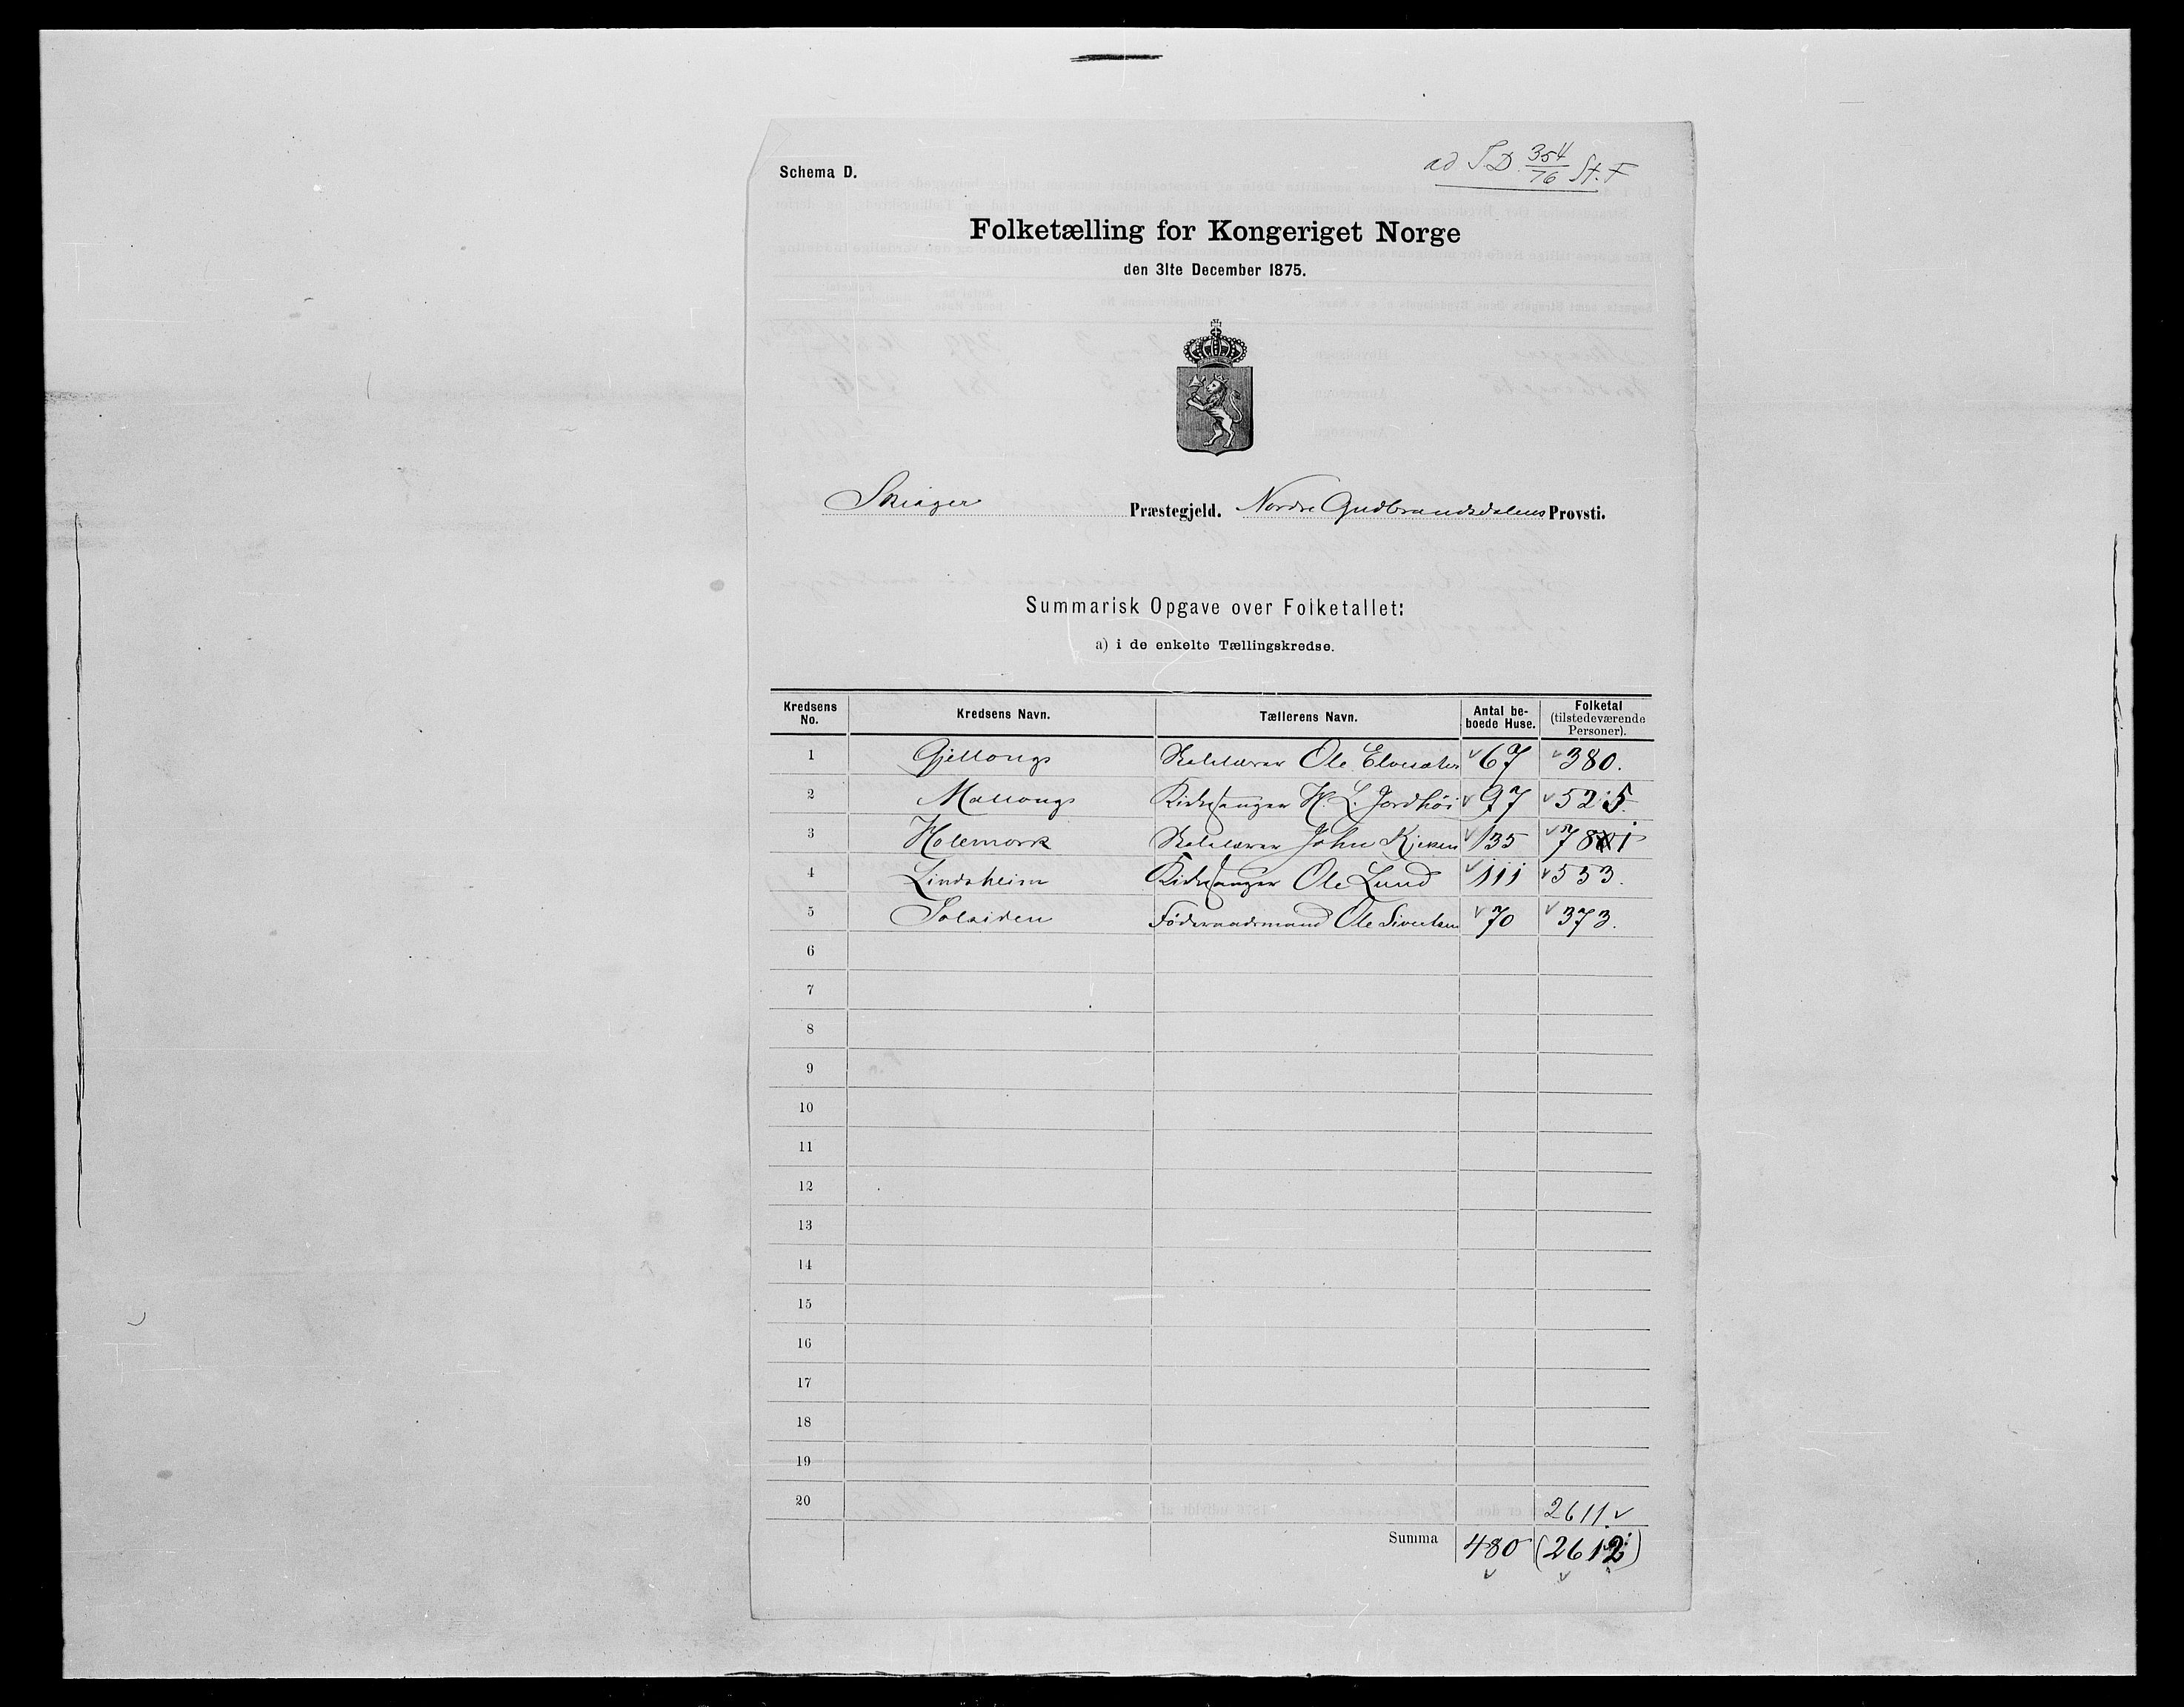 Schema D.
ad S.D. 354/76 St. F
Folketælling for Kongeriget Norge
den 31te December 1875.
Skiager Præstegjeld. Nordre Gudbrandsdalens Provsti.
Summarisk Opgave over Folketallet:
a) i de enkelte Tællingskredse.
Kredsens No. Kredsens Navn. Tællerens Navn. Antal beboede Huse. Folketal (tilstedeværende Personer).
1 Gjellongs Skolelærer Ole Elvesæter 67 380.
2 Mallongs Kirkesanger H. L. Jordhöi 97 525.
3 Holemork Skolelærer John Kjeken 135
4 Lindsheim Kirkesanger Ole Lund 111 533.
5 Solsiden Föderaadsmand Ole Sivertsen 70 373.
6
7
8
9
10
11
12
13
14
15
16
17
18
19
20
2611
Summa 480 (2612)